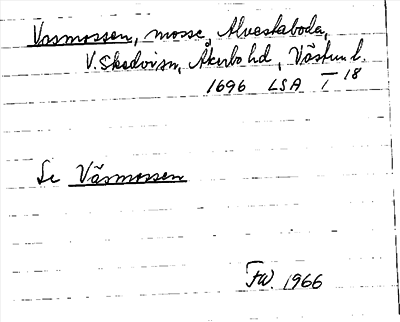 Vosmossen, mosse, Alvestaboda,
V. Skedvi sn, Åkerbo hd, Västm l.
1696 LSA T 18
Se Väsmossen
FW. 1966